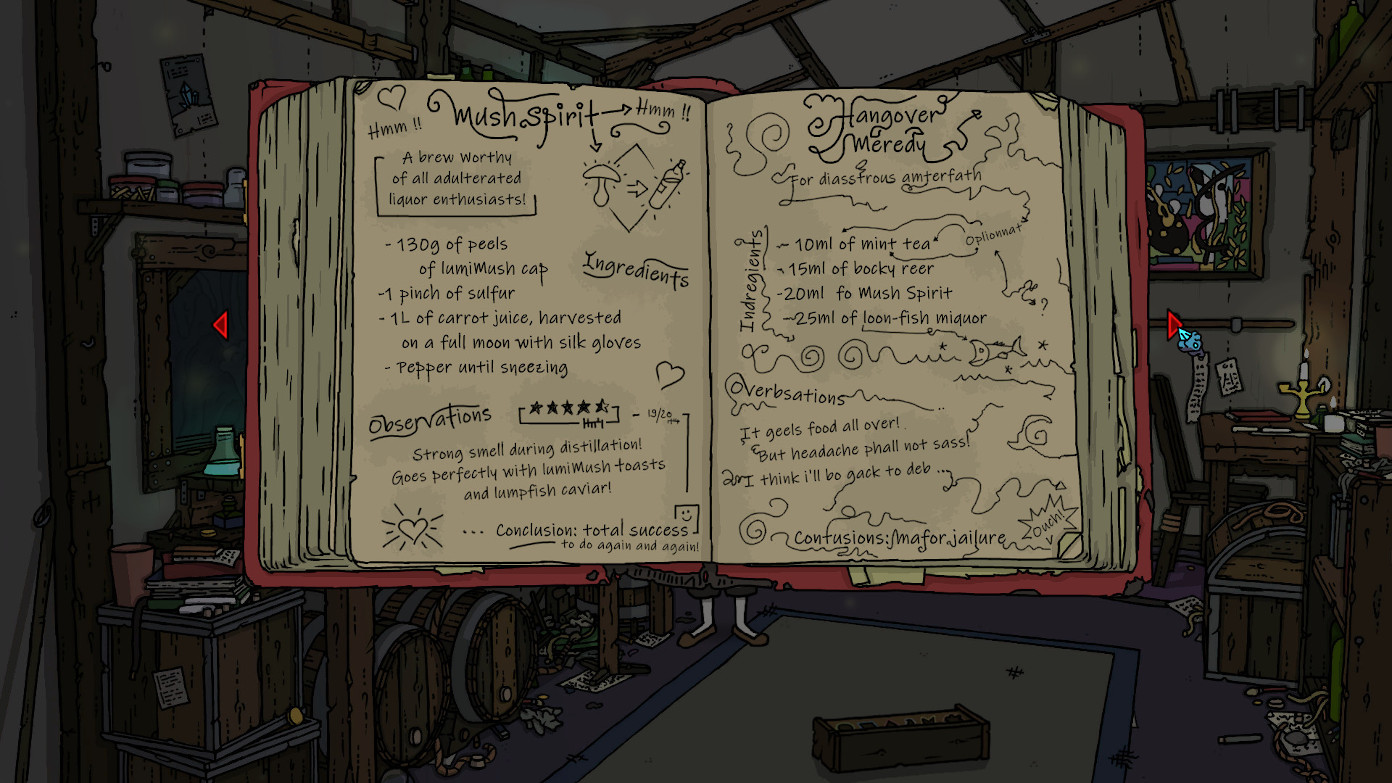 Mush Spirit
Hmm !!
Hmm !!
A brew worthy
of all adulterated
liquor enthusiasts!
- 130g of peels
of lumiMush cap
-1 pinch of sulfur
- 1L of carrot juice, harvested
on a full moon with silk gloves
- Pepper until sneezing
Ingredients
Observations
- 19/20
Strong smell during distillation!
Goes perfectly with lumiMush toasts
and lumpfish caviar!
... Conclusion: total success
to do again and again!
Hangover
Meredy
For diasstrous amterfath
Indregients
- 10ml of mint tea
Oplionnat
- 15ml of bocky reer
-20ml fo Mush Spirit
-25ml of loon-fish miquor
?
Overbsations
It geels food all over!
But headache phall not sass!
I think i'll bo gack to deb ...
Contusions: mafor jailure
Ouch!